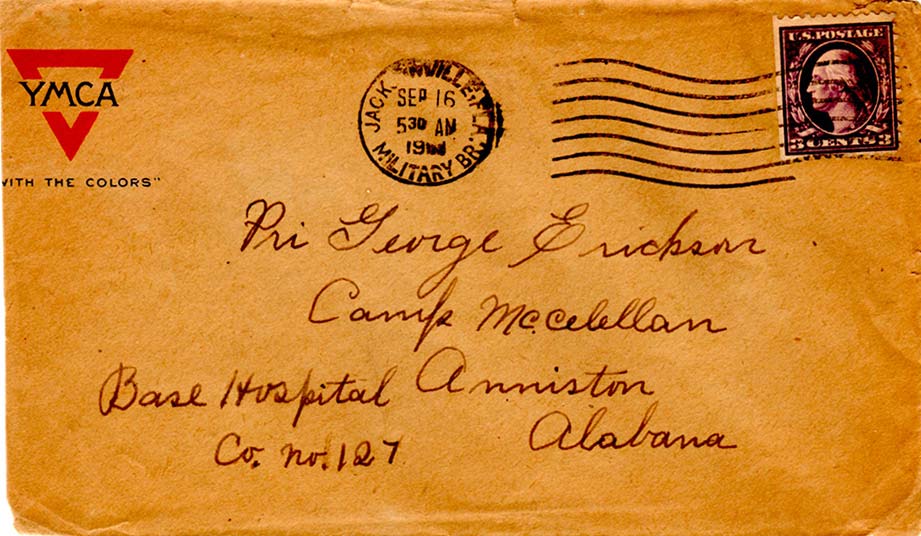 YMCA
WITH THE COLORS"
JACKSONVILLE, FLA.
SEP 16
5 30 AM
MILITARY BR.
U.S. POSTAGE
3 CENTS 3
Pri George Erickson
Camp McCelellan
Base Hospital Anniston
Co. No. 127 Alabana